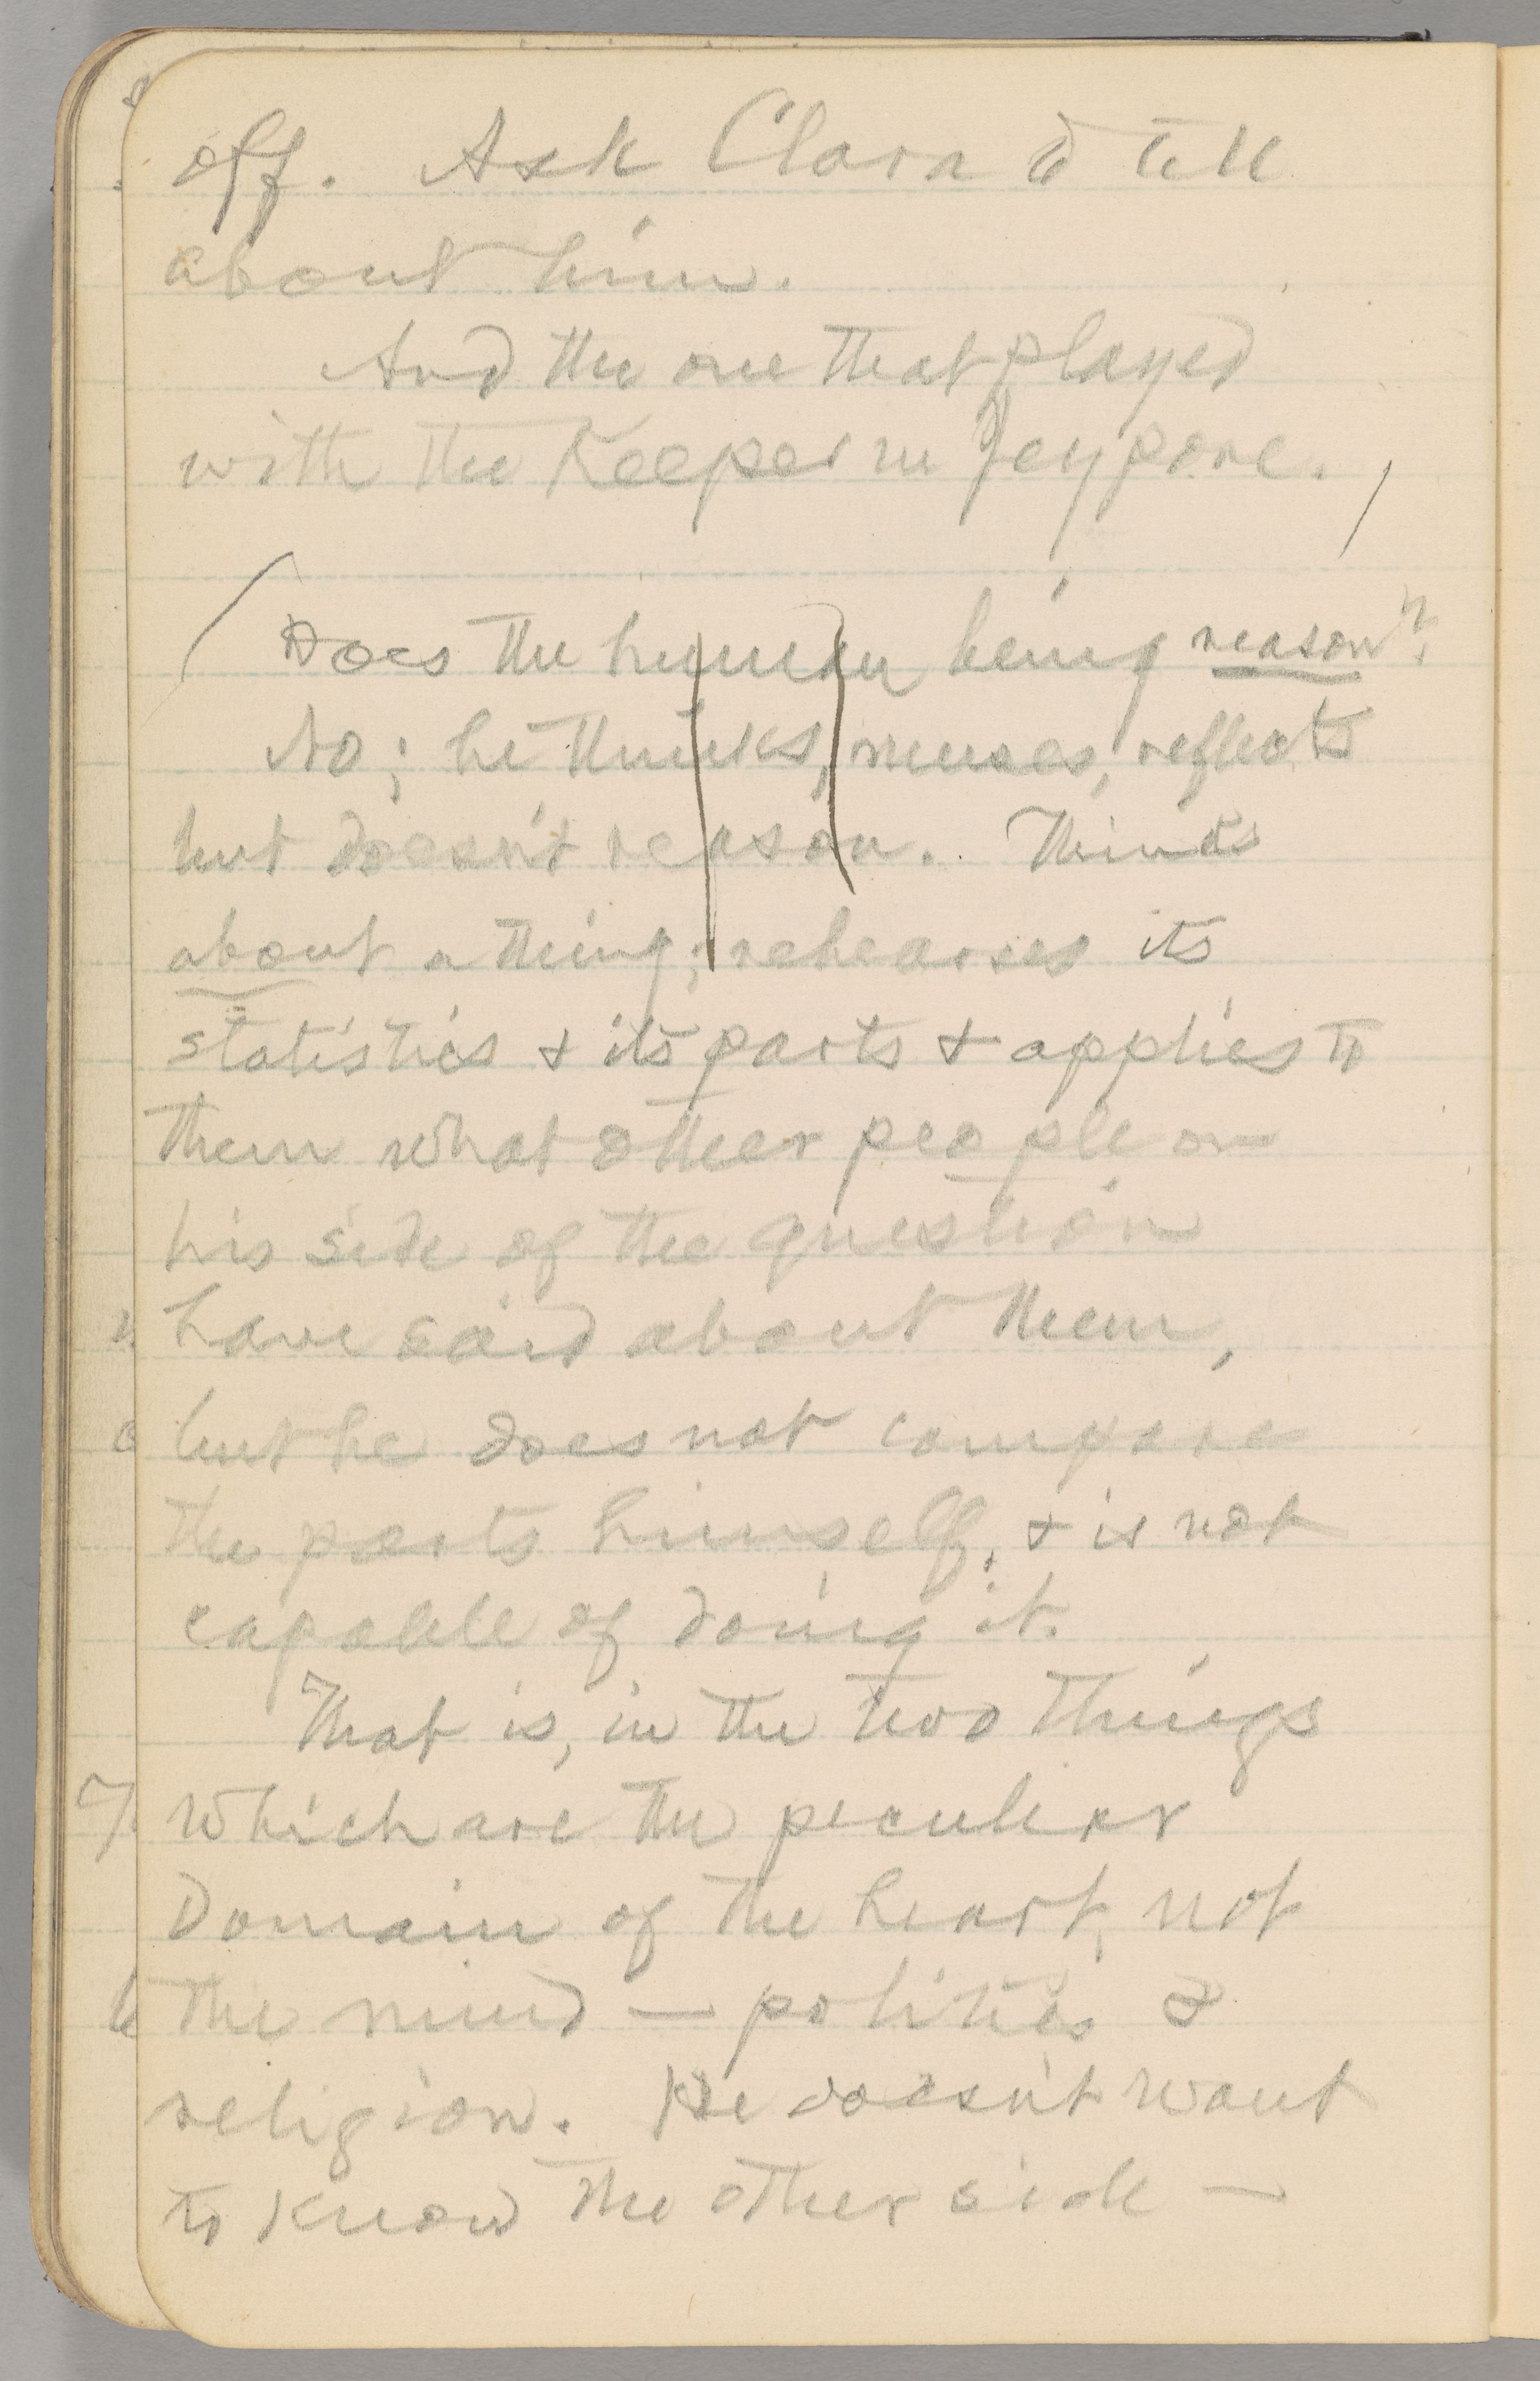 off. Ask Clara to tell
about him.
And the one that played
with the Keeper in Jeypore.
Does the human being reason?
No; he thinks, muses, reflects
but doesn't reason. Thinks
about a thing; rehearses its
statistics & its parts & applies to
them what other people on
his side of the question
have said about them,
but he does not compare
the parts himself, & is not
capable of doing it.
That is, in the two things
which are the peculiar
domain of the heart, not
the mind — politics &
religion. He doesn't want
to know the other side —